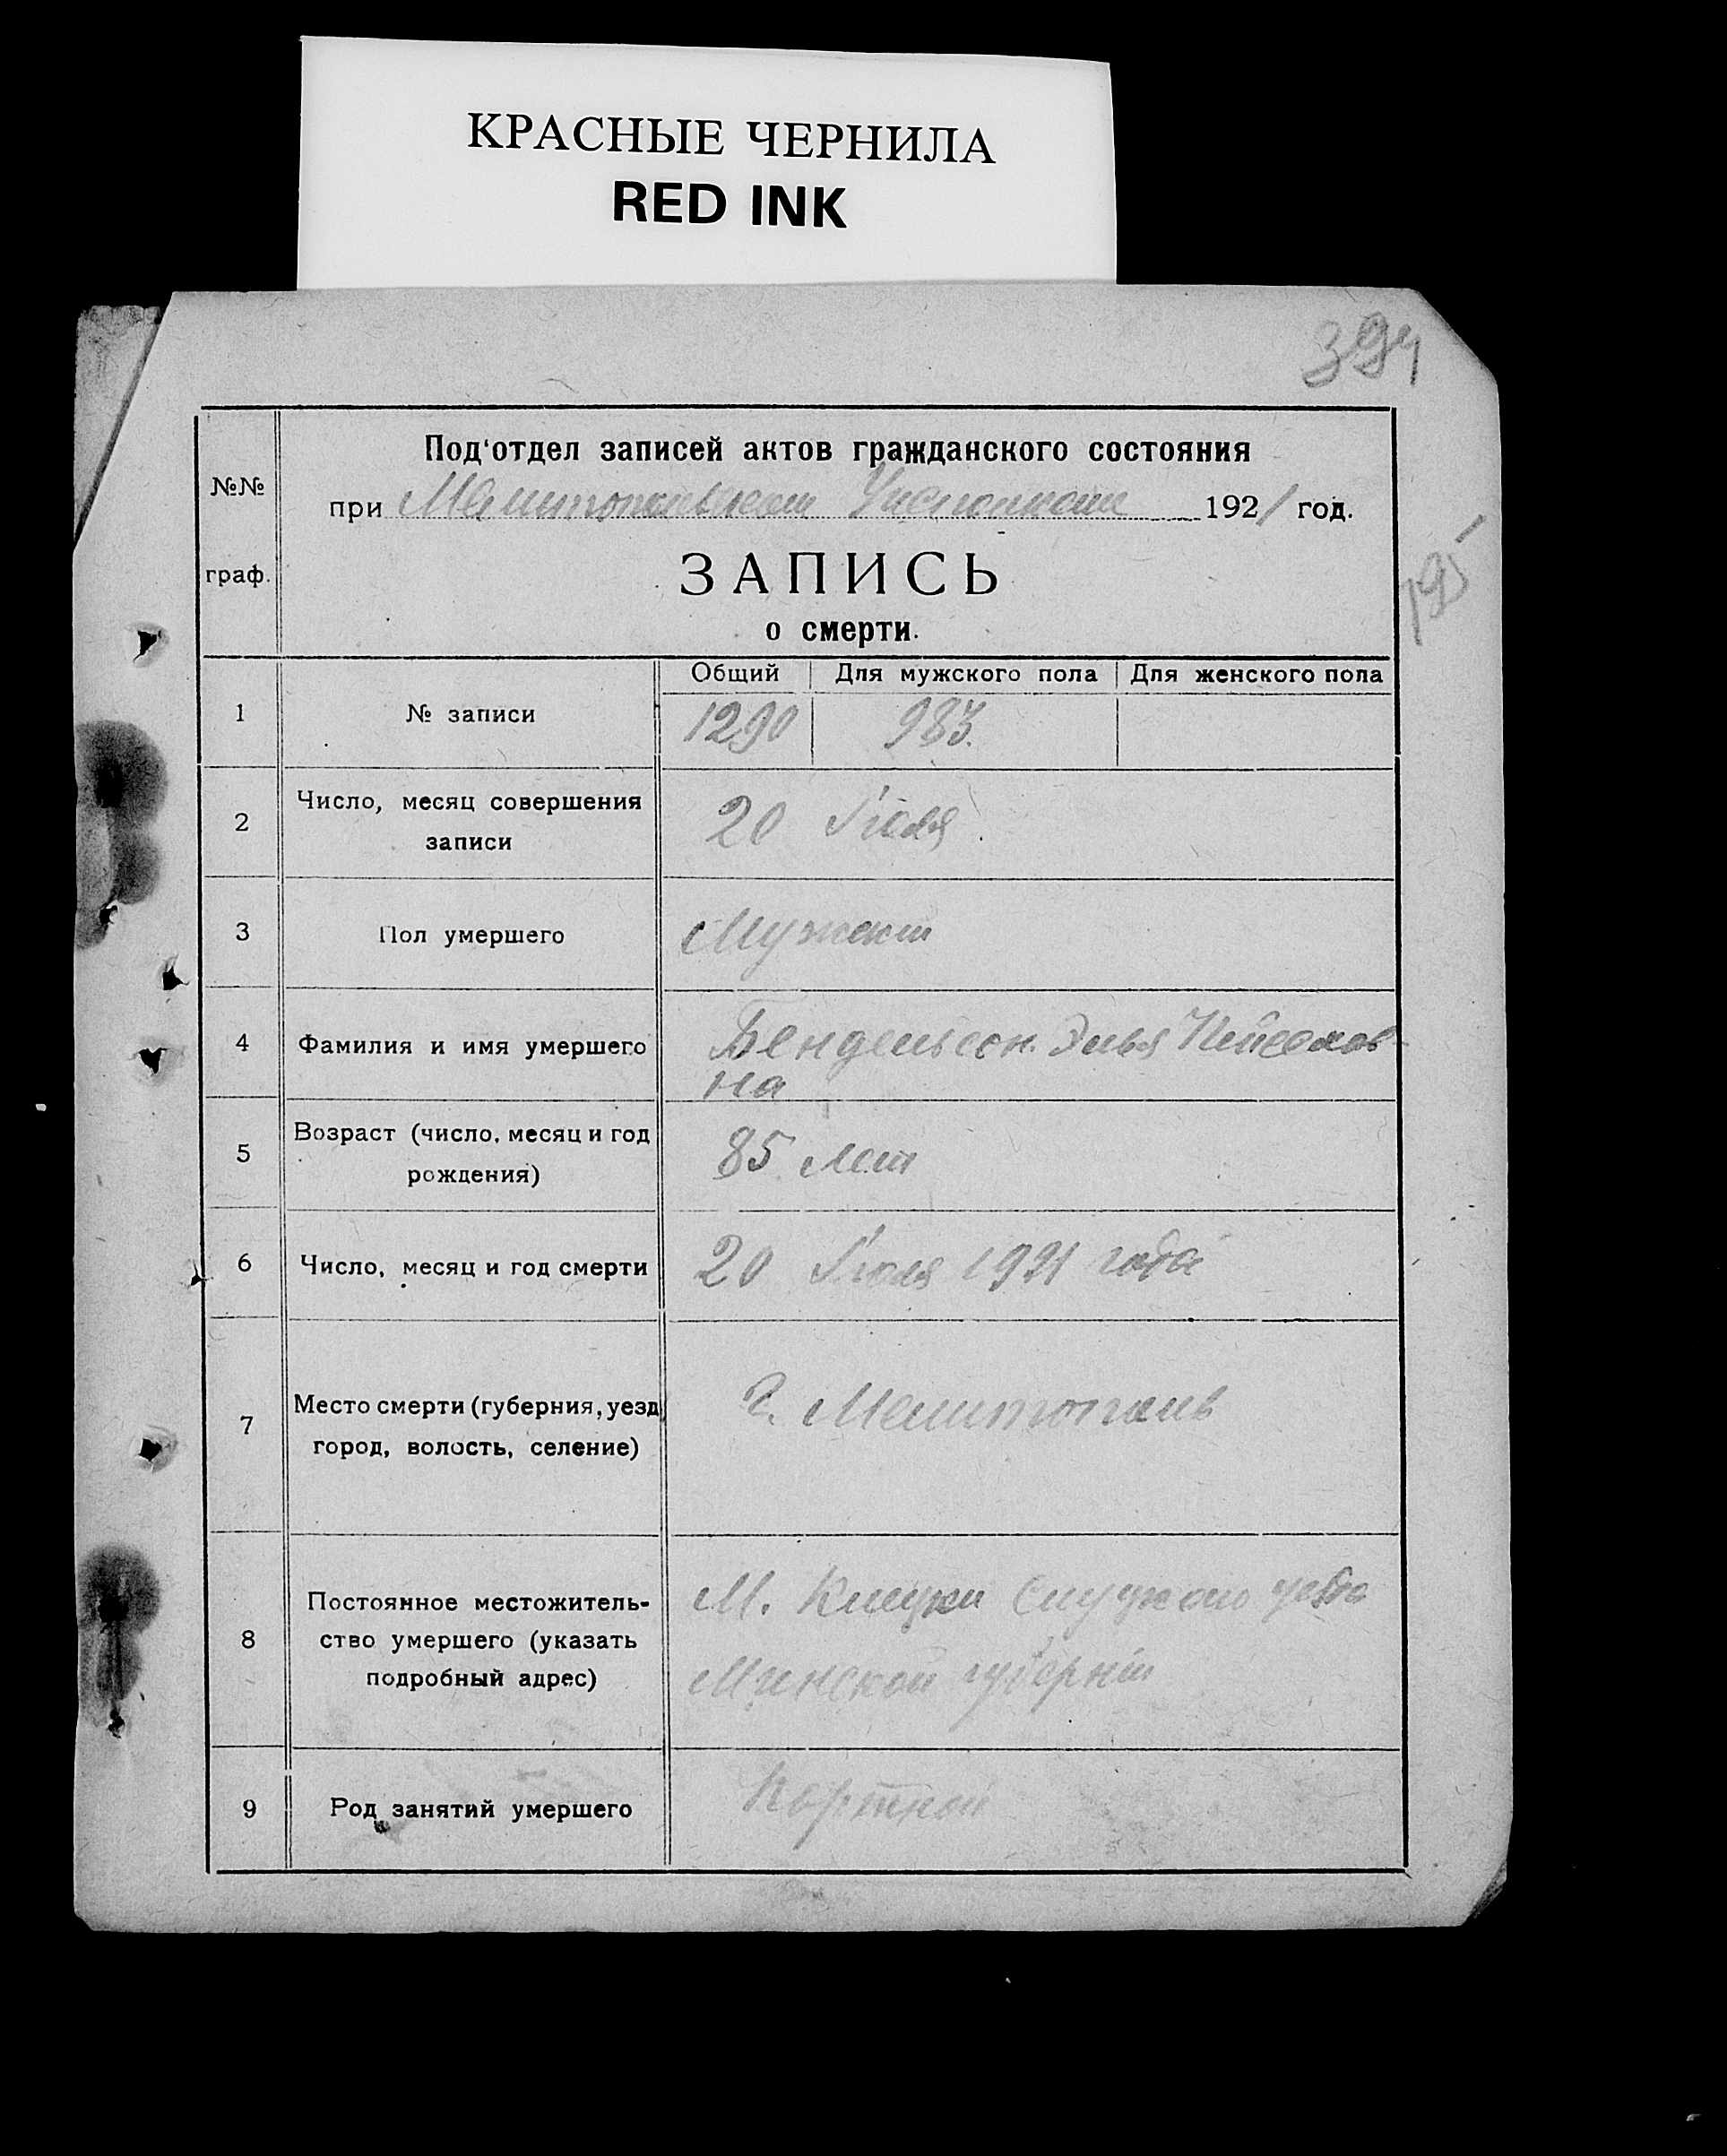 КРАСНЫЕ ЧЕРНИЛА
RED INK
394
Под'отдел записей актов гражданского состояния
№№ при Мелитопольском 1921 год.
195
граф. ЗАПИСЬ
о смерти.
Общий Для мужского пола Для женского пола
1 № записи 1290 983.
2 Число, месяц совершения записи 20 Июля
3 Пол умершего Мужской
4 Фамилия и имя умершего Бендельсон. Элья
на
5 Возраст (число, месяц и год рождения) 85 лет
6 Число, месяц и год смерти 20 Июля 1921 года
7 Место смерти (губерния, уезд, город, волость, селение) г. Мелитополь
8 Постоянное местожитель-
ство умершего (указать
подробный адрес) М. уезда
Минской губернии
9 Род занятий умершего Портной